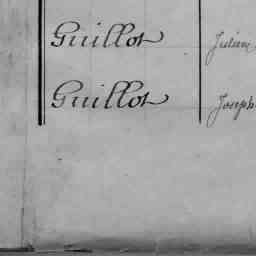 Guillot Julien
Guillot Joseph